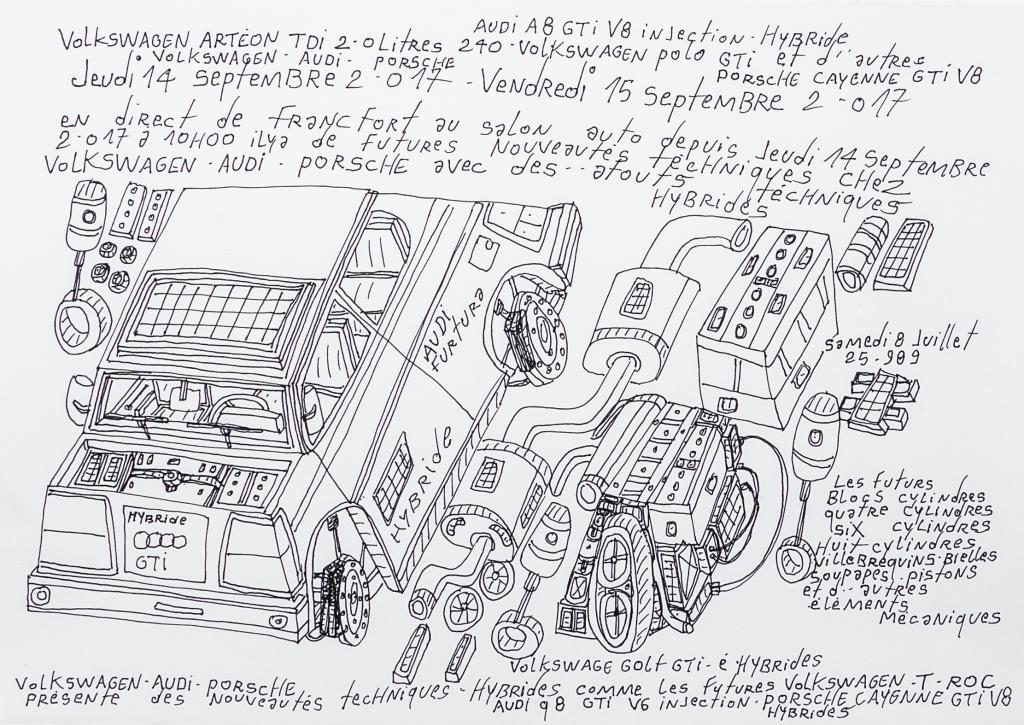 AUDI A8 GTI V8 INJECTION - HYBRIDE
VOLKSWAGEN ARTÉON TDI 2-0 LITRES 240 - VOLKSWAGEN POLO GTI et d'autres
VOLKSWAGEN - AUDI - PORSCHE
PORSCHE CAYENNE GTI V8
Jeudi 14 Septembre 2-017 - Vendredi 15 Septembre 2-017
en direct de FRANCFORT au salon auto depuis Jeudi 14 Septembre
2-017 à 10H00 ilya de futures nouveautés techniques CHEZ
VOLKSWAGEN - AUDI - PORSCHE avec des - atouts techniques
HYBRIDES
samedi 8 Juillet
25-989
AUDI
FURTURA
HYBRIDE
HYBRIDE
GTI
Les futurs
BLOCS cylindres
quatre cylindres
six cylindres
Huit cylindres
VILLEBREQUINS-BIELLES
soupapes.pistons
et d'autres
éléments
Mécaniques
VOLKSWAGE GOLF GTI-é HYBRIDES
VOLKSWAGEN-AUDI-PORSCHE techniques-HYBRIDES comme les futures VOLKSWAGEN-T-ROC
présente des nouveautés AUDI q8 GTI V6 injection-PORSCHE CAYENNE GTI V8
HYBRIDES